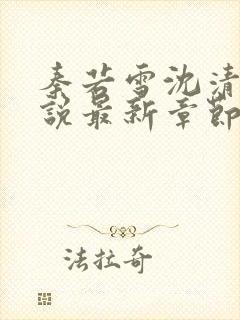 秦若雪沈清
說最新章節
法拉奇